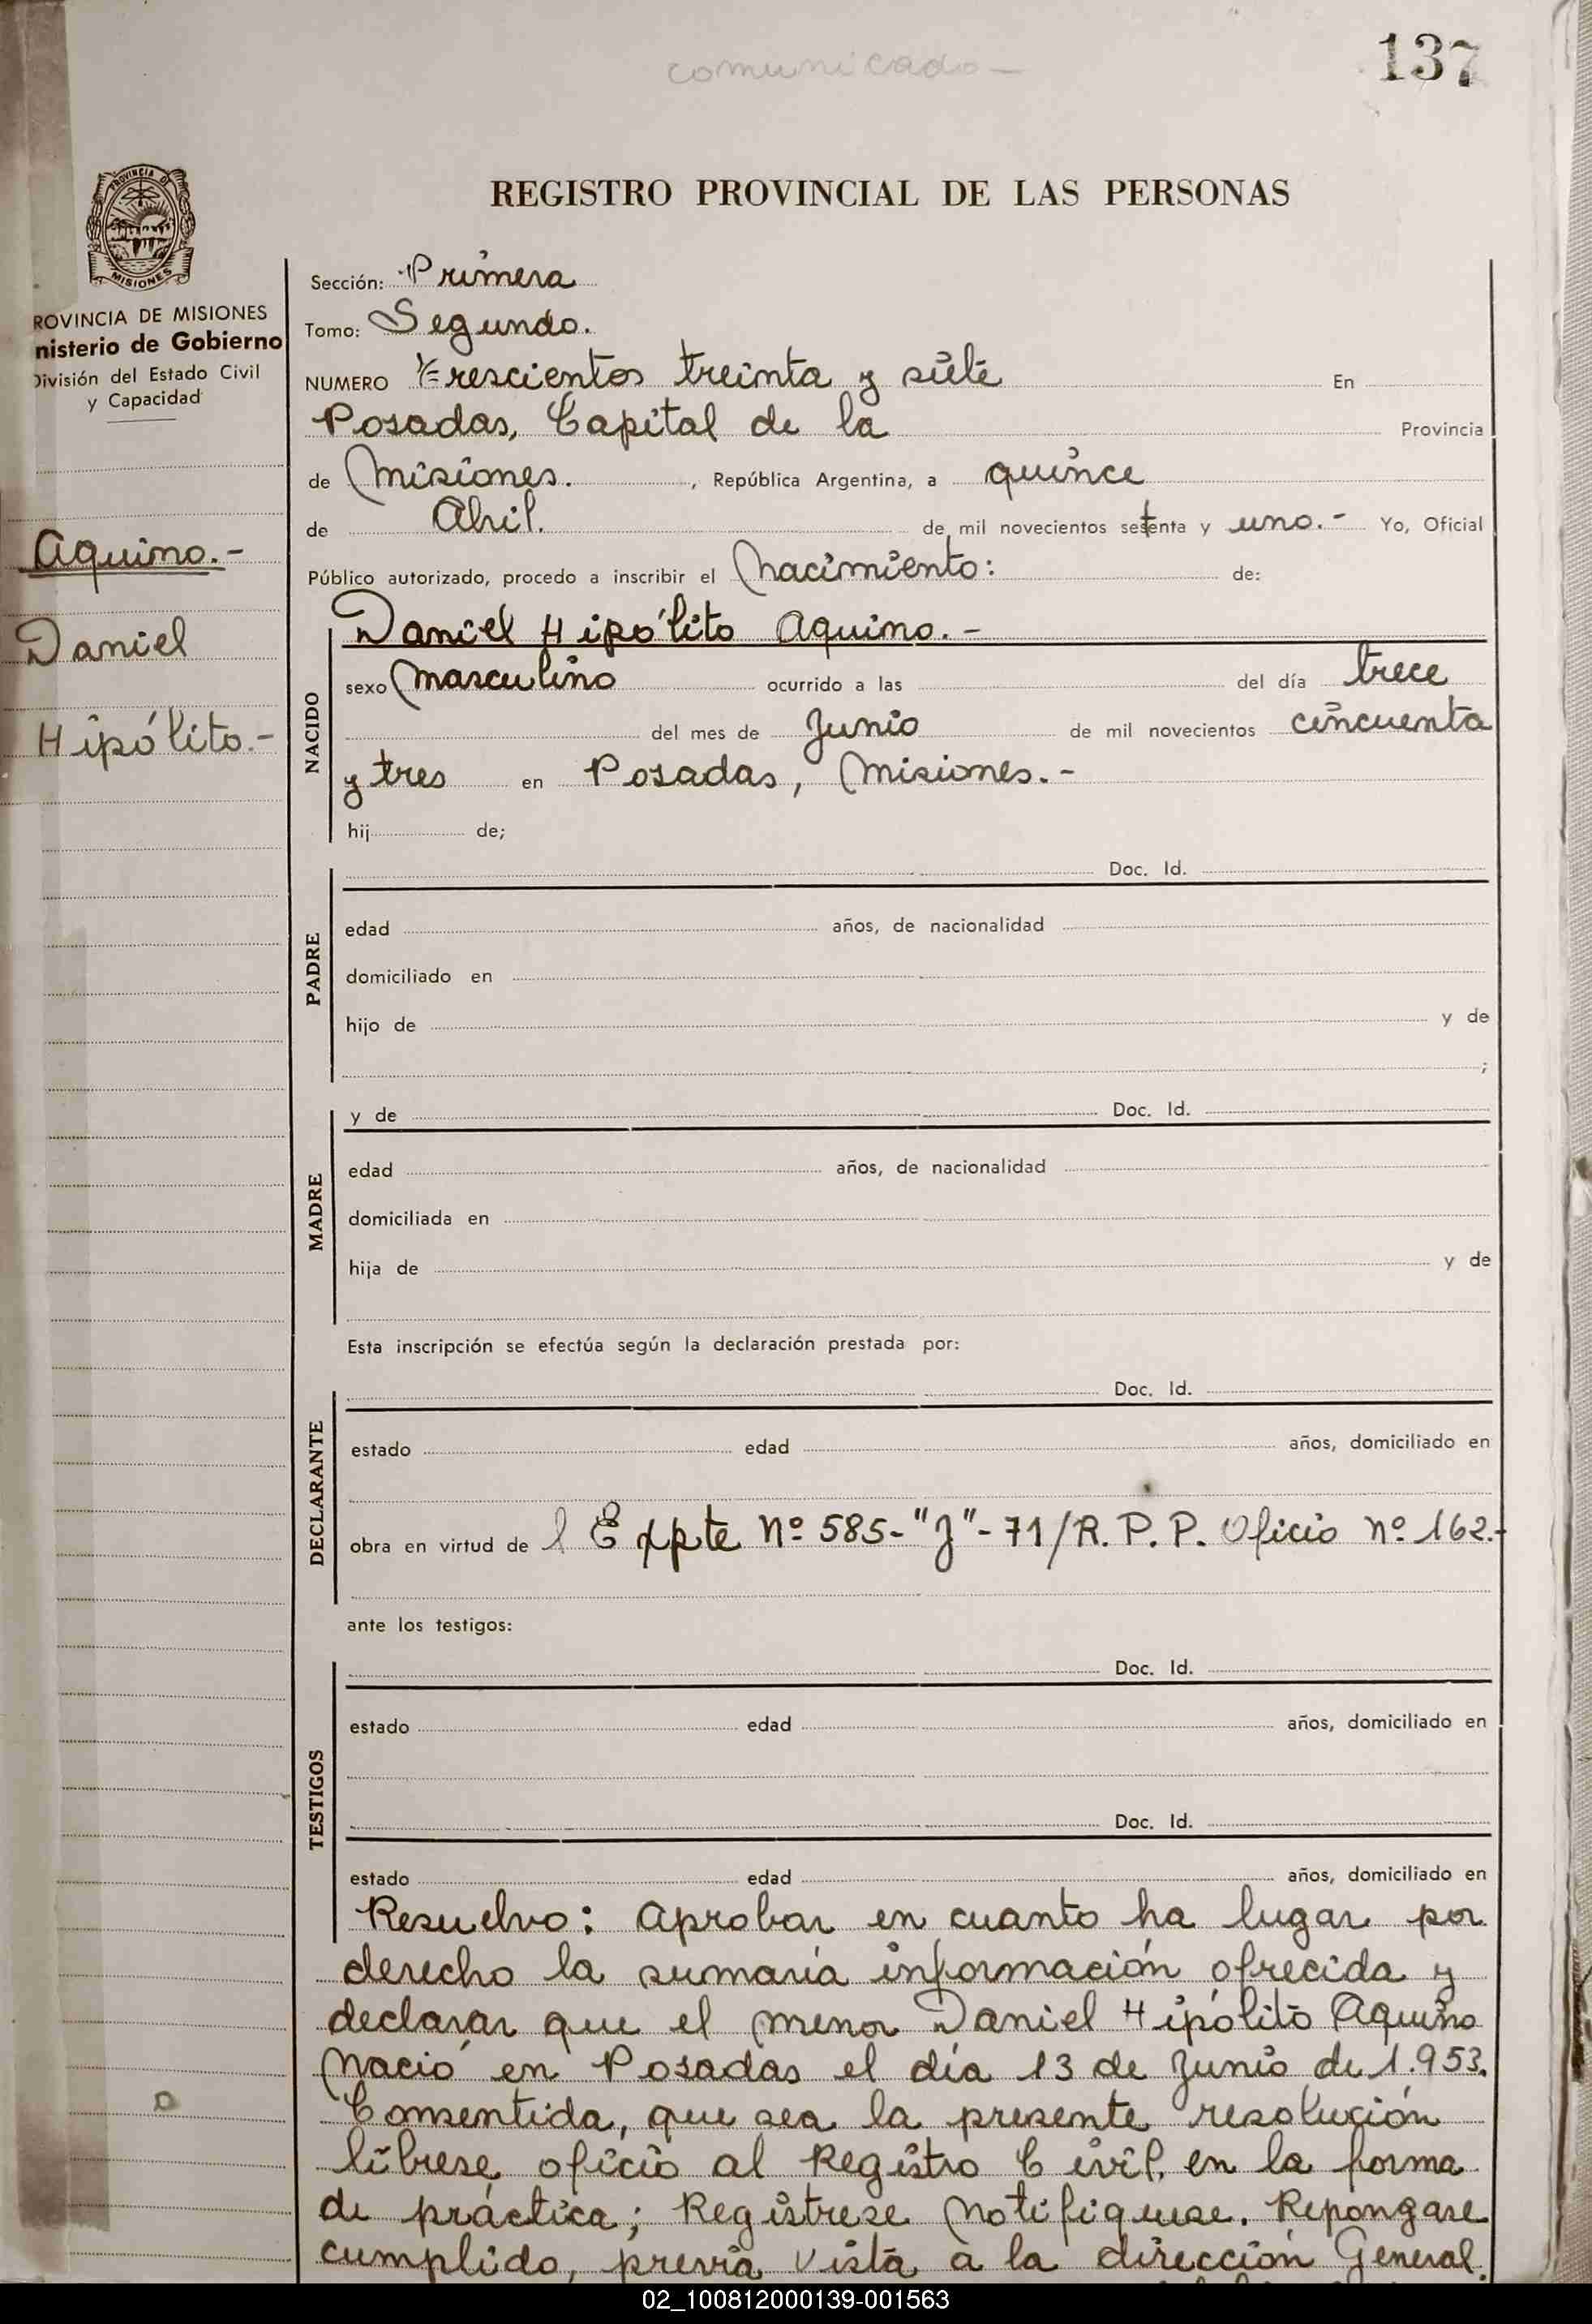 comunicado -
137
REGISTRO PROVINCIAL DE LAS PERSONAS
PROVINCIA DE
MISIONES
ROVINCIA DE MISIONES
nisterio de Gobierno
División del Estado Civil
y Capacidad
Aquino.-
Daniel
Hipólito.-
Sección: Primera
Tomo: Segundo.
NUMERO Trescientos treinta y siete En
Posadas, Capital de la Provincia
de Misiones. , República Argentina, a quince
de Abril. de mil novecientos setenta y uno.- Yo, Oficial
Público autorizado, procedo a inscribir el Nacimiento: de:
NACIDO
Daniel Hipólito Aquino.-
sexo Masculino ocurrido a las del día trece
del mes de Junio de mil novecientos cincuenta
y tres en Posadas, Misiones.-
hij de;
PADRE
Doc. Id.
edad años, de nacionalidad
domiciliado en
hijo de y de
;
MADRE
y de Doc. Id.
edad años, de nacionalidad
domiciliada en
hija de y de
Esta inscripción se efectúa según la declaración prestada por:
DECLARANTE
Doc. Id.
estado edad años, domiciliado en
obra en virtud de l Expte Nº 585-"J"-71/R.P.P. Oficio nº 162.-
ante los testigos:
TESTIGOS
Doc. Id.
estado edad años, domiciliado en
Doc. Id.
estado edad años, domiciliado en
Resuelvo: Aprobar en cuanto ha lugar por
derecho la sumaria información ofrecida y
declarar que el menor Daniel Hipólito Aquino
Nació en Posadas el día 13 de Junio de 1.953.
Consentida, que sea la presente resolución
líbrese oficio al Registro Civil, en la forma
de práctica; Registrese Notifiquese. Repongase
cumplido, previa vista a la dirección General.
02_100812000139-001563